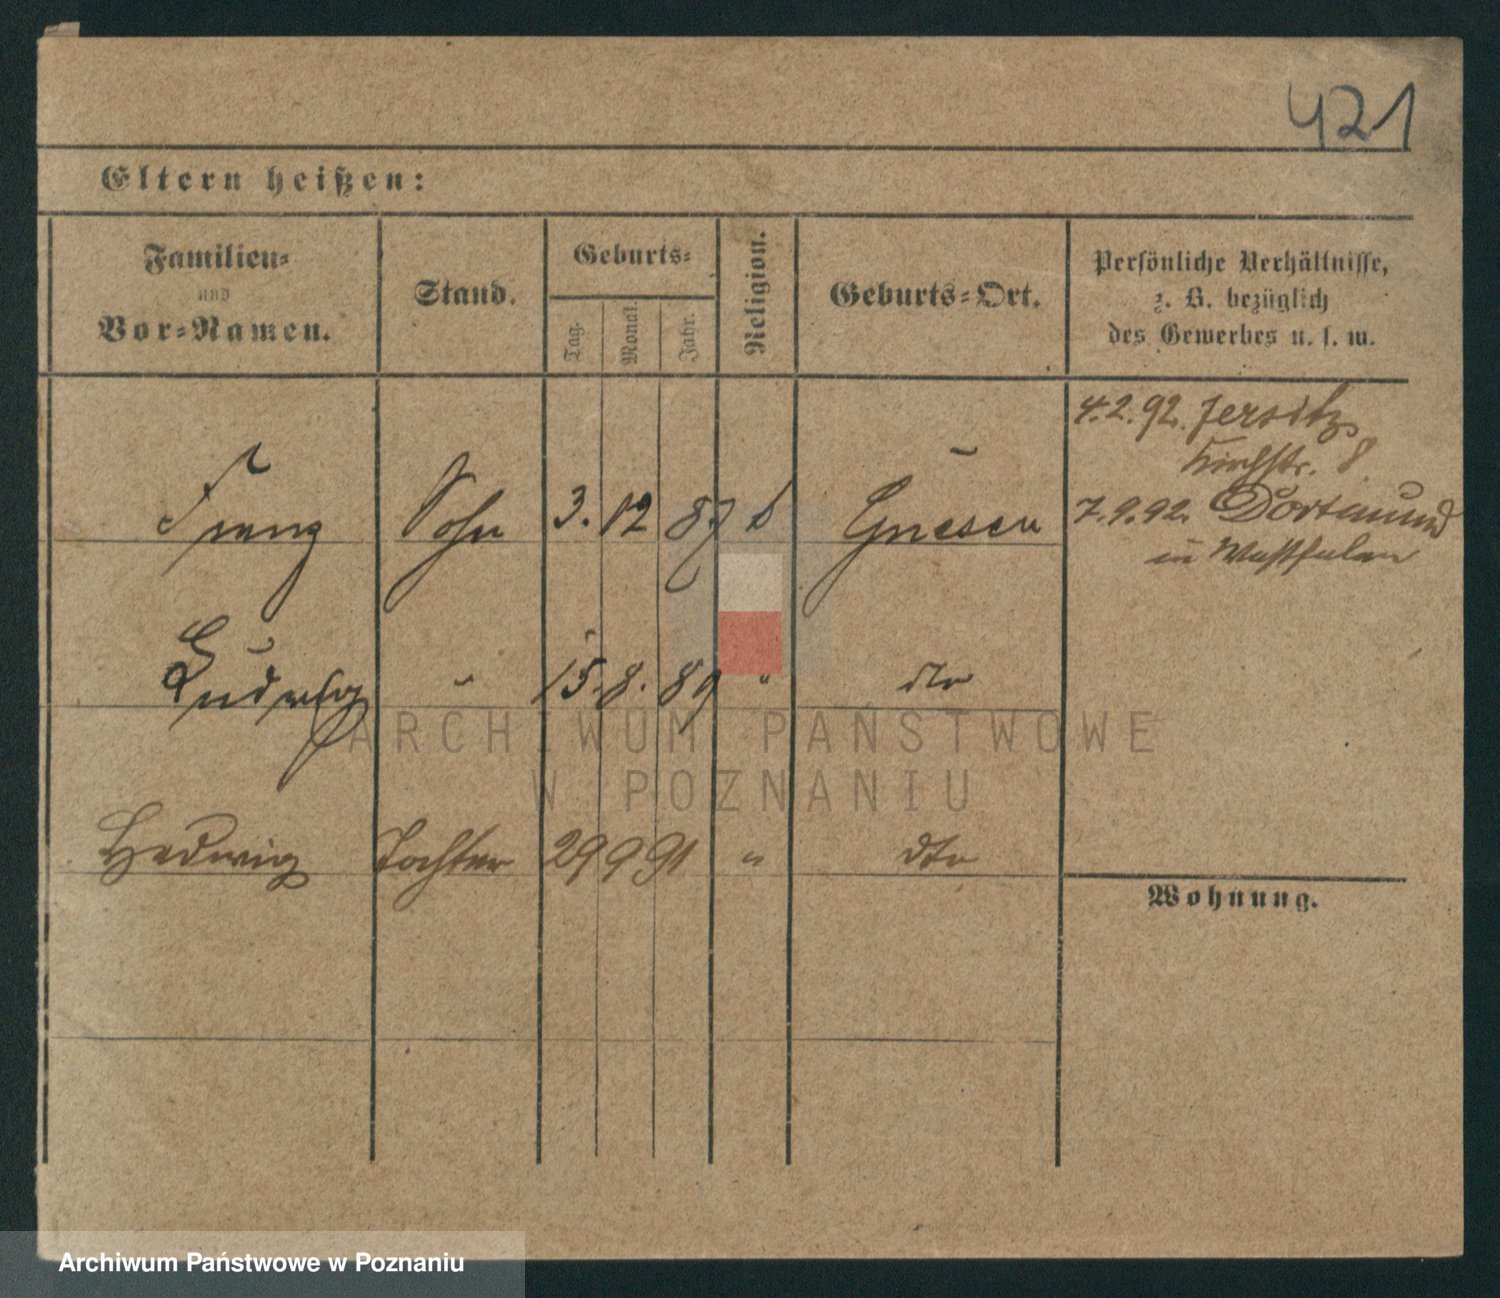 421
Eltern heißen:
Familien=
und
Vor=Namen.
Stand.
Geburts=
Tag.
Monat.
Jahr.
Religion.
Geburts=Ort.
Persönliche Verhältnisse,
z. B. bezüglich
des Gewerbes u. s. w.
4.2.92. Jersitz,
Kirchstr. 8
Franz Sohn 3. 12 87 Gnesen
7.9.92. Dortmund
in Westfalen
Ludwig " 15. 8. 89 " dto
ARCHIWUM PAŃSTWOWE
W POZNANIU
Hedwig Tochter 29 9 91 " dto
Wohnung.
Archiwum Państwowe w Poznaniu